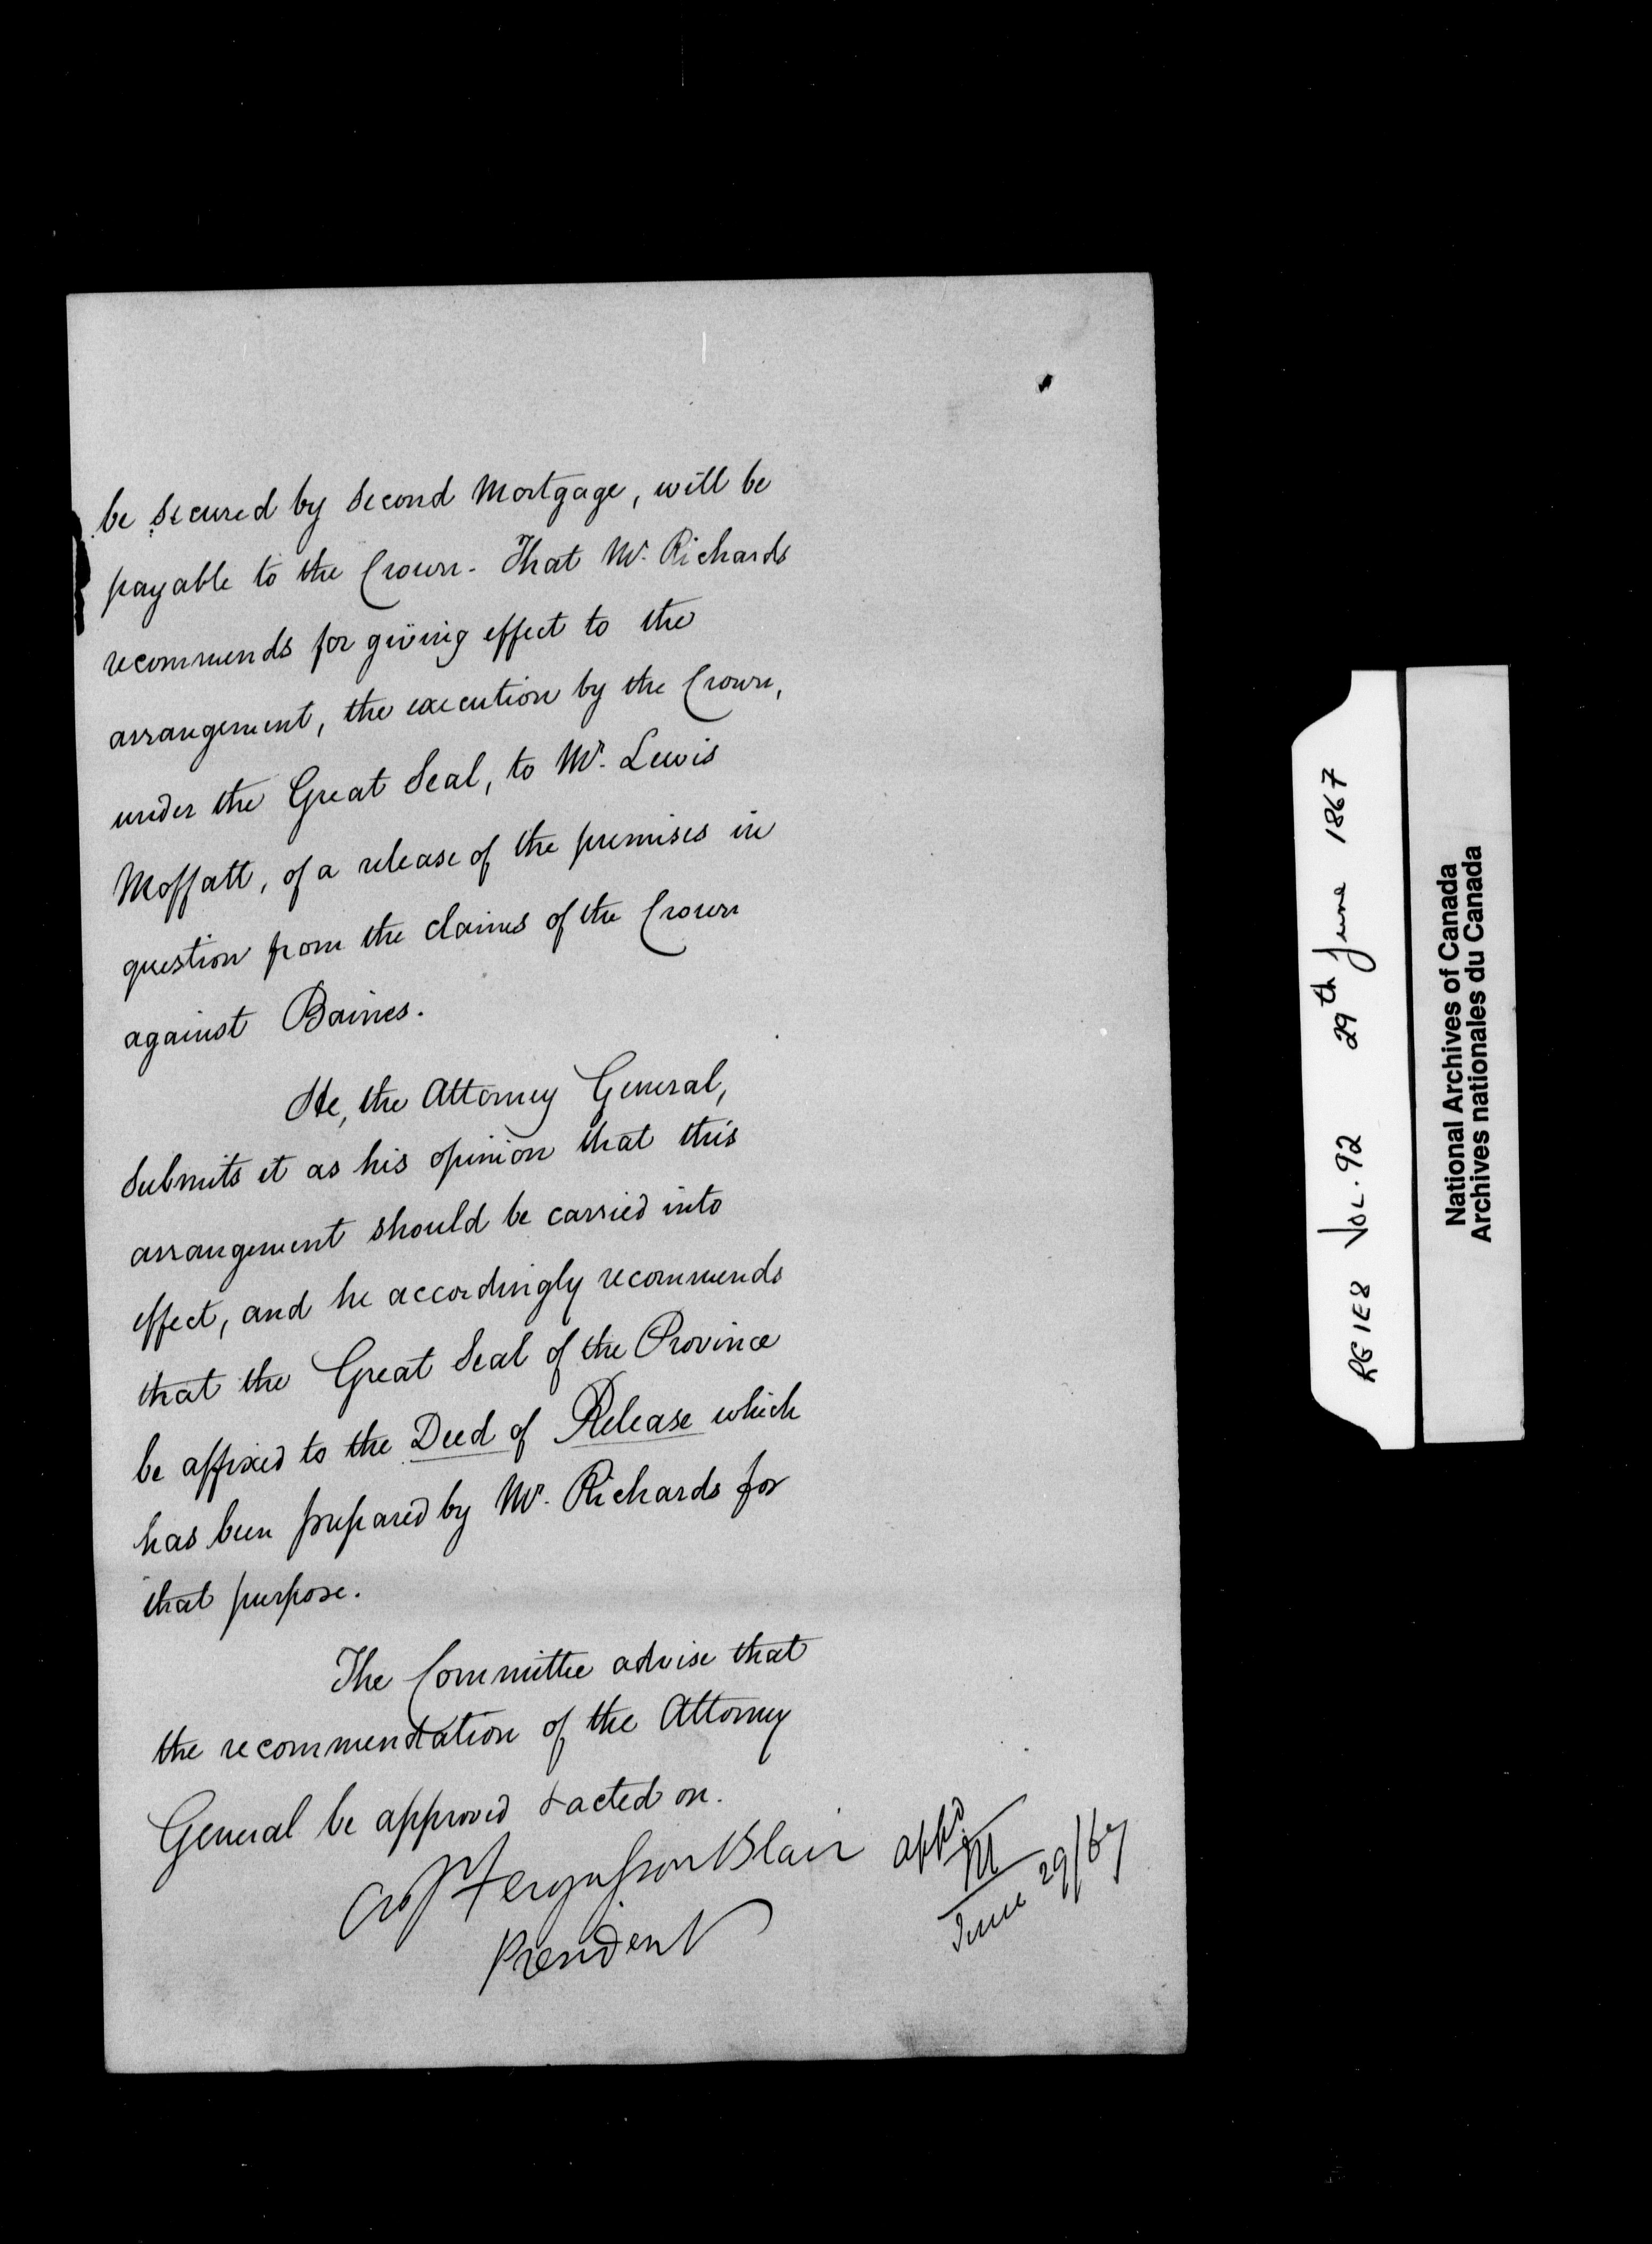 be secured by Second Mortgage, will be
payable to the Crown. That Mr. Richards
recommends for giving effect to the
arrangement, the execution by the Crown,
under the Great Seal, to Mr. Lewis
Moffatt, of a release of the premises in
question from the claims of the Crown
against Baines.
He, the Attorney General,
submits it as his opinion that this
arrangement should be carried into
effect, and he accordingly recommends
that the Great Seal of the Province
be affixed to the Deed of Release which
has been prepared by Mr. Richards for
that purpose.
The Committee advise that
the recommendation of the Attorney
General be approved & acted on.
Fergusson Blair
President
appd.
M
June 29/67
RG 1E8 VOL. 92 29th June 1867
National Archives of Canada
Archives nationales du Canada